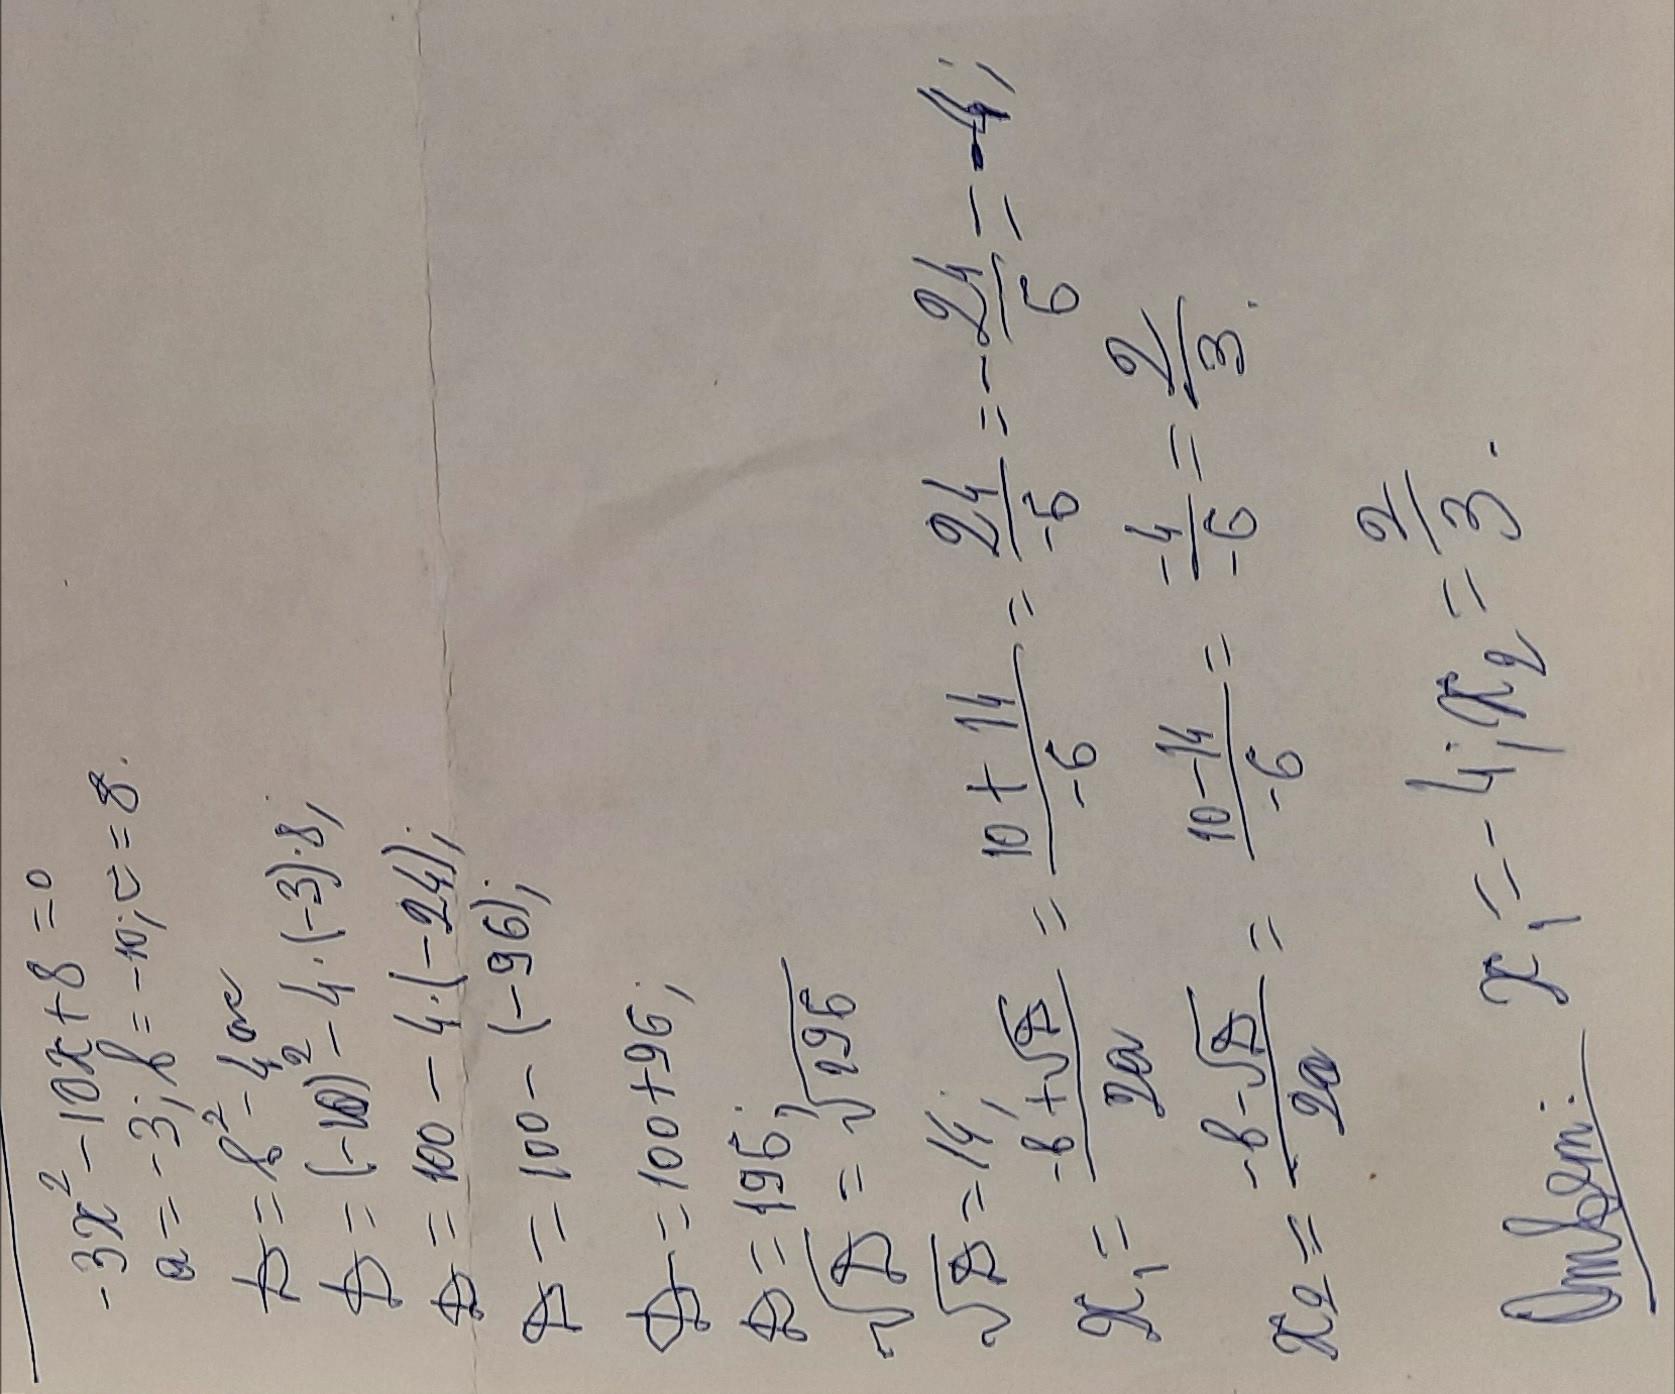 -3x² - 10x + 8 = 0
a = -3; b = -10; c = 8.
D = b² - 4ac
D = (-10)² - 4·(-3)·8;
D = 100 - 4·(-24);
D = 100 - (-96);
D = 100 + 96;
D = 196;
√D = √196
√D = 14;
x₁ = (-b + √D)/2a = (10 + 14)/-6 = 24/-6 = -24/6 = -4;
x₂ = (-b - √D)/2a = (10 - 14)/-6 = -4/-6 = 2/3.
Ответ: x₁ = -4; x₂ = 2/3.